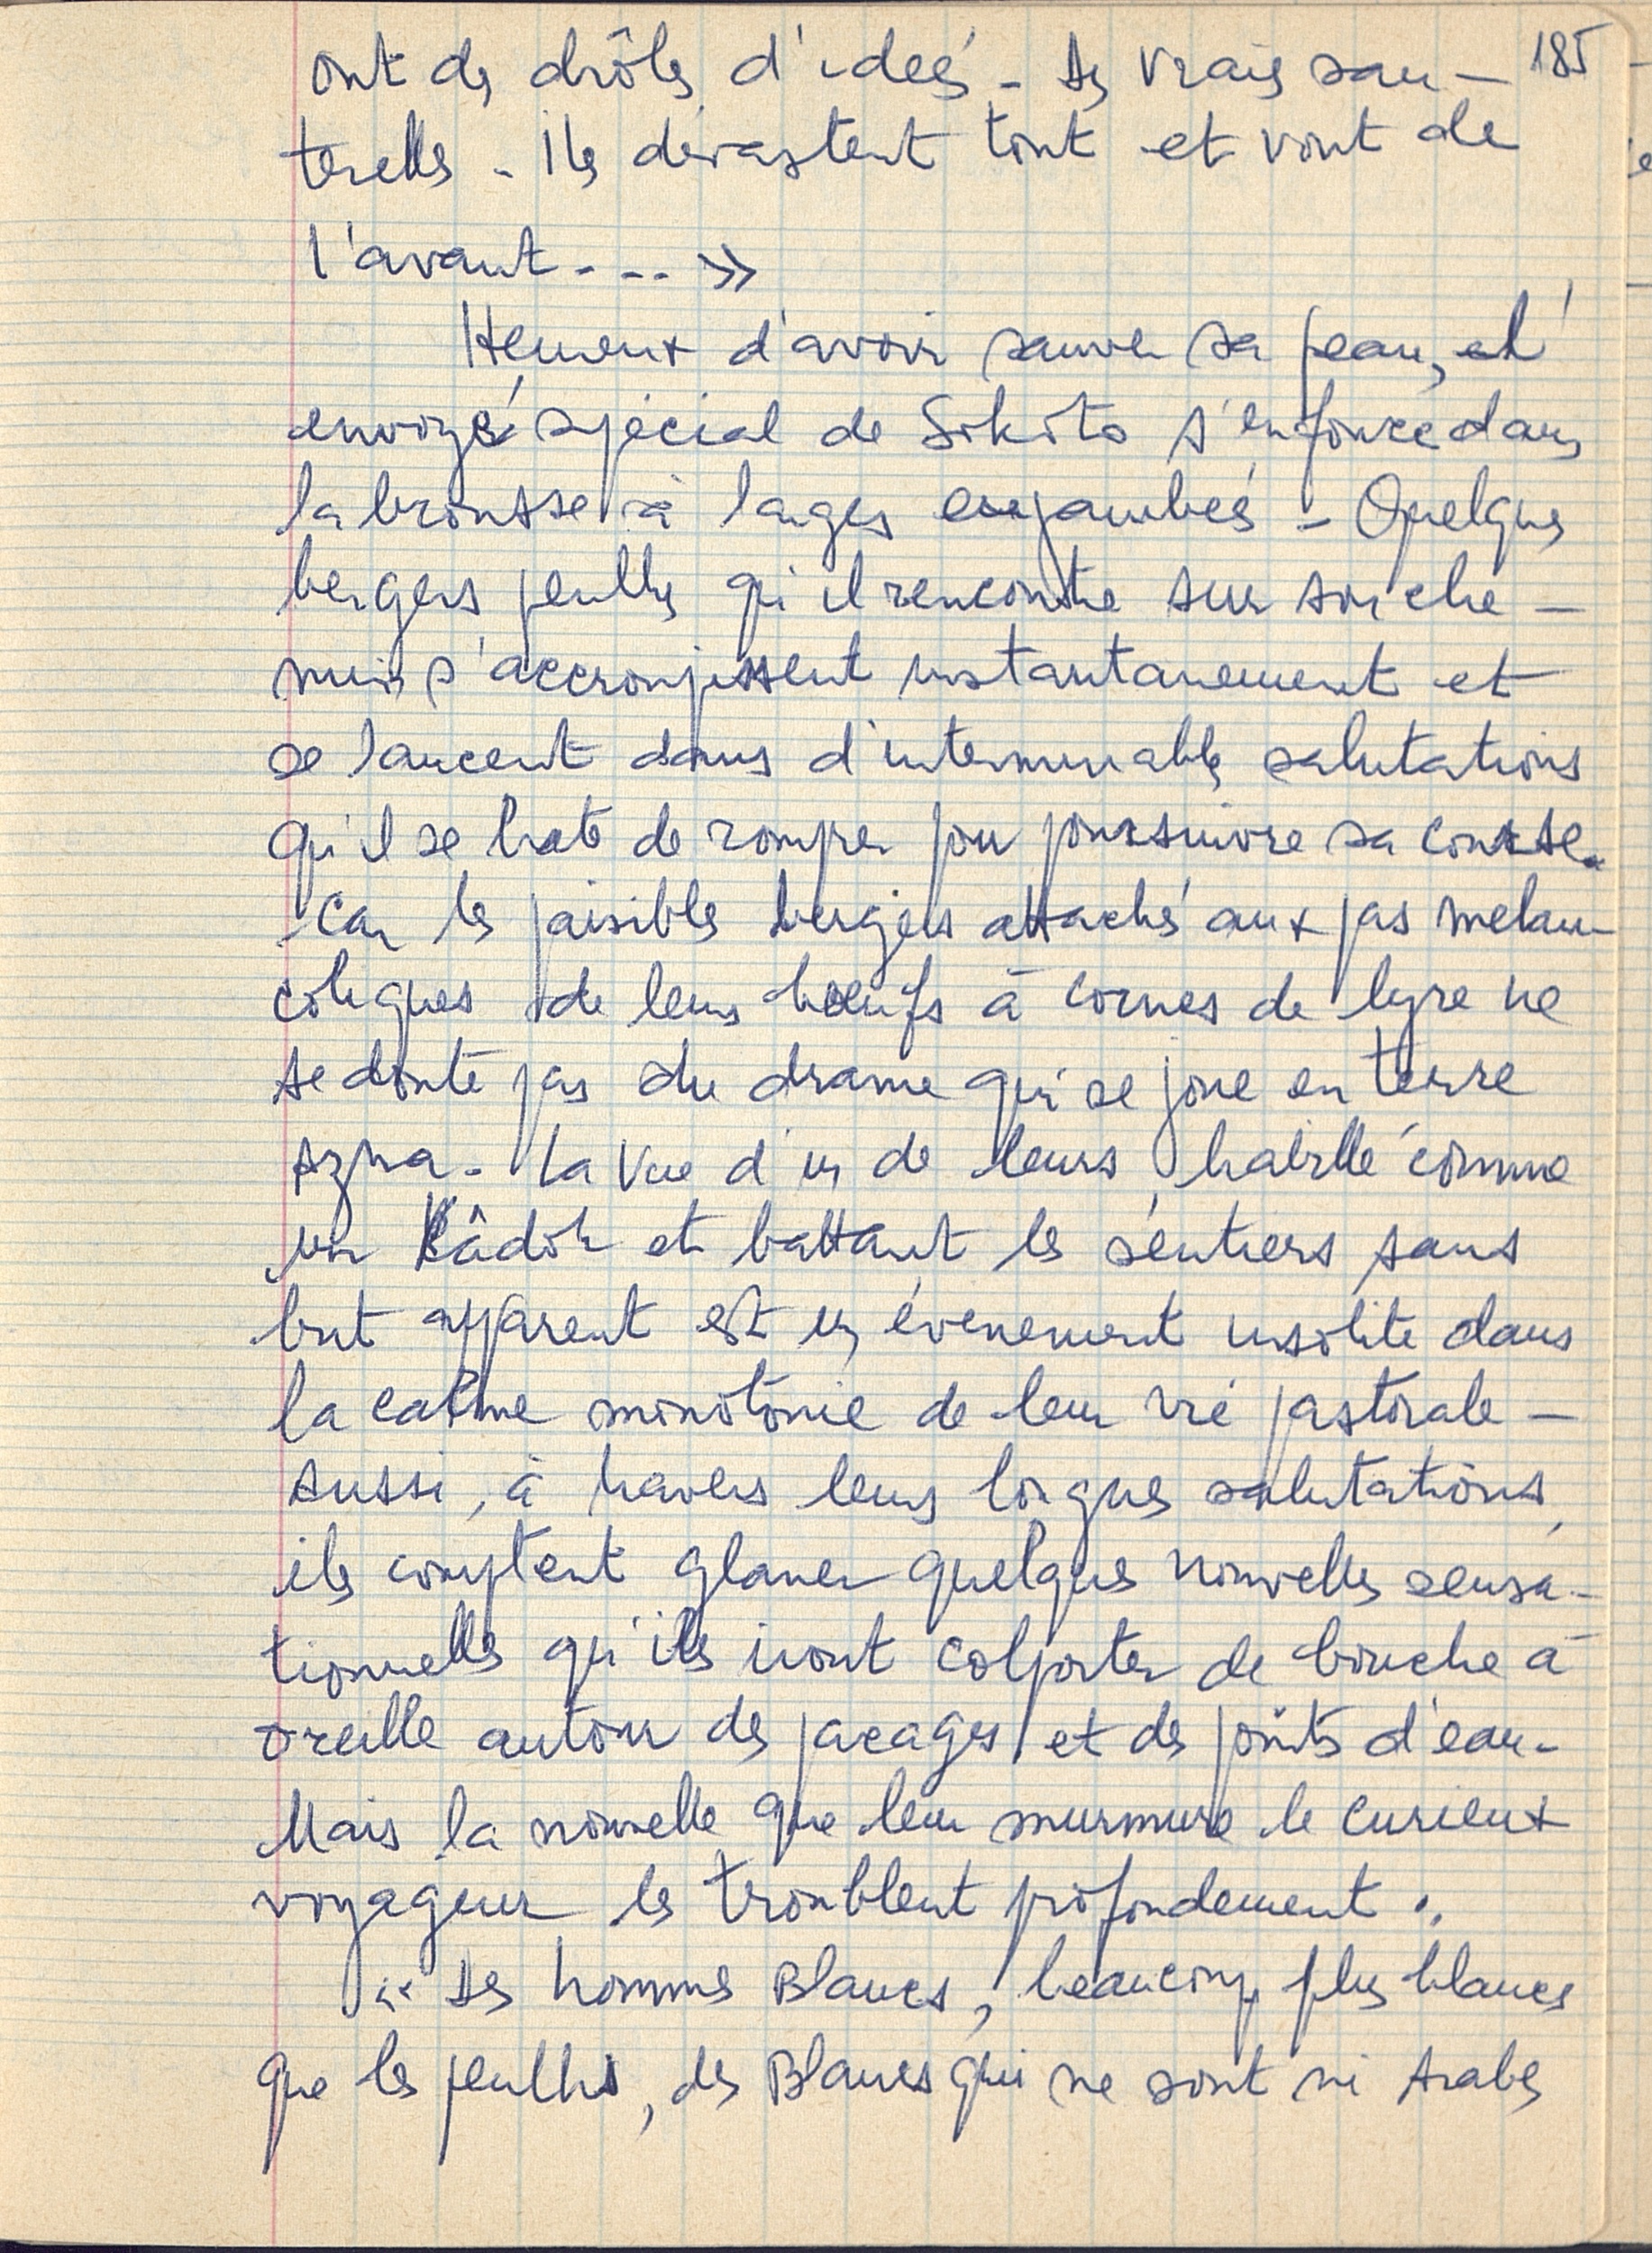 ont des drôles d'idées - Des vrais sau- 185
terelles. Ils dévastent tout et vont de
l'avant.... »
Heureux d'avoir sauver sa peau, cet
envoyé spécial de Sokoto s'enfonce dans
la brousse à larges enjambées - Quelques
bergers peulhs qu'il rencontre sur son che-
min s'accroupissent instantanement et
se lancent dans d'interminables salutations
qu'il se hate de rompre pour poursuivre sa course.
Car les paisibles bergers attachés aux pas melan-
coliques de leurs boeufs à cornes de lyre ne
se doute pas du drame qui se joue en terre
Azna. La vue d'un de leurs, habillé comme
un Kâdo et battant les sentiers sans
but apparent est un évenement insolite dans
la calme monotonie de leur vie pastorale -
Aussi, à travers leurs longues salutations,
ils comptent glaner quelques nouvelles sensa-
tionnelles qu'ils iront colporter de bouche à
oreille autour des pacages et des points d'eau.
Mais la nouvelle que leur murmure le curieux
voyageur les troublent profondement :
« Des hommes Blancs, beaucoup plus blancs
que les peulhs, des Blancs qui ne sont ni Arabes